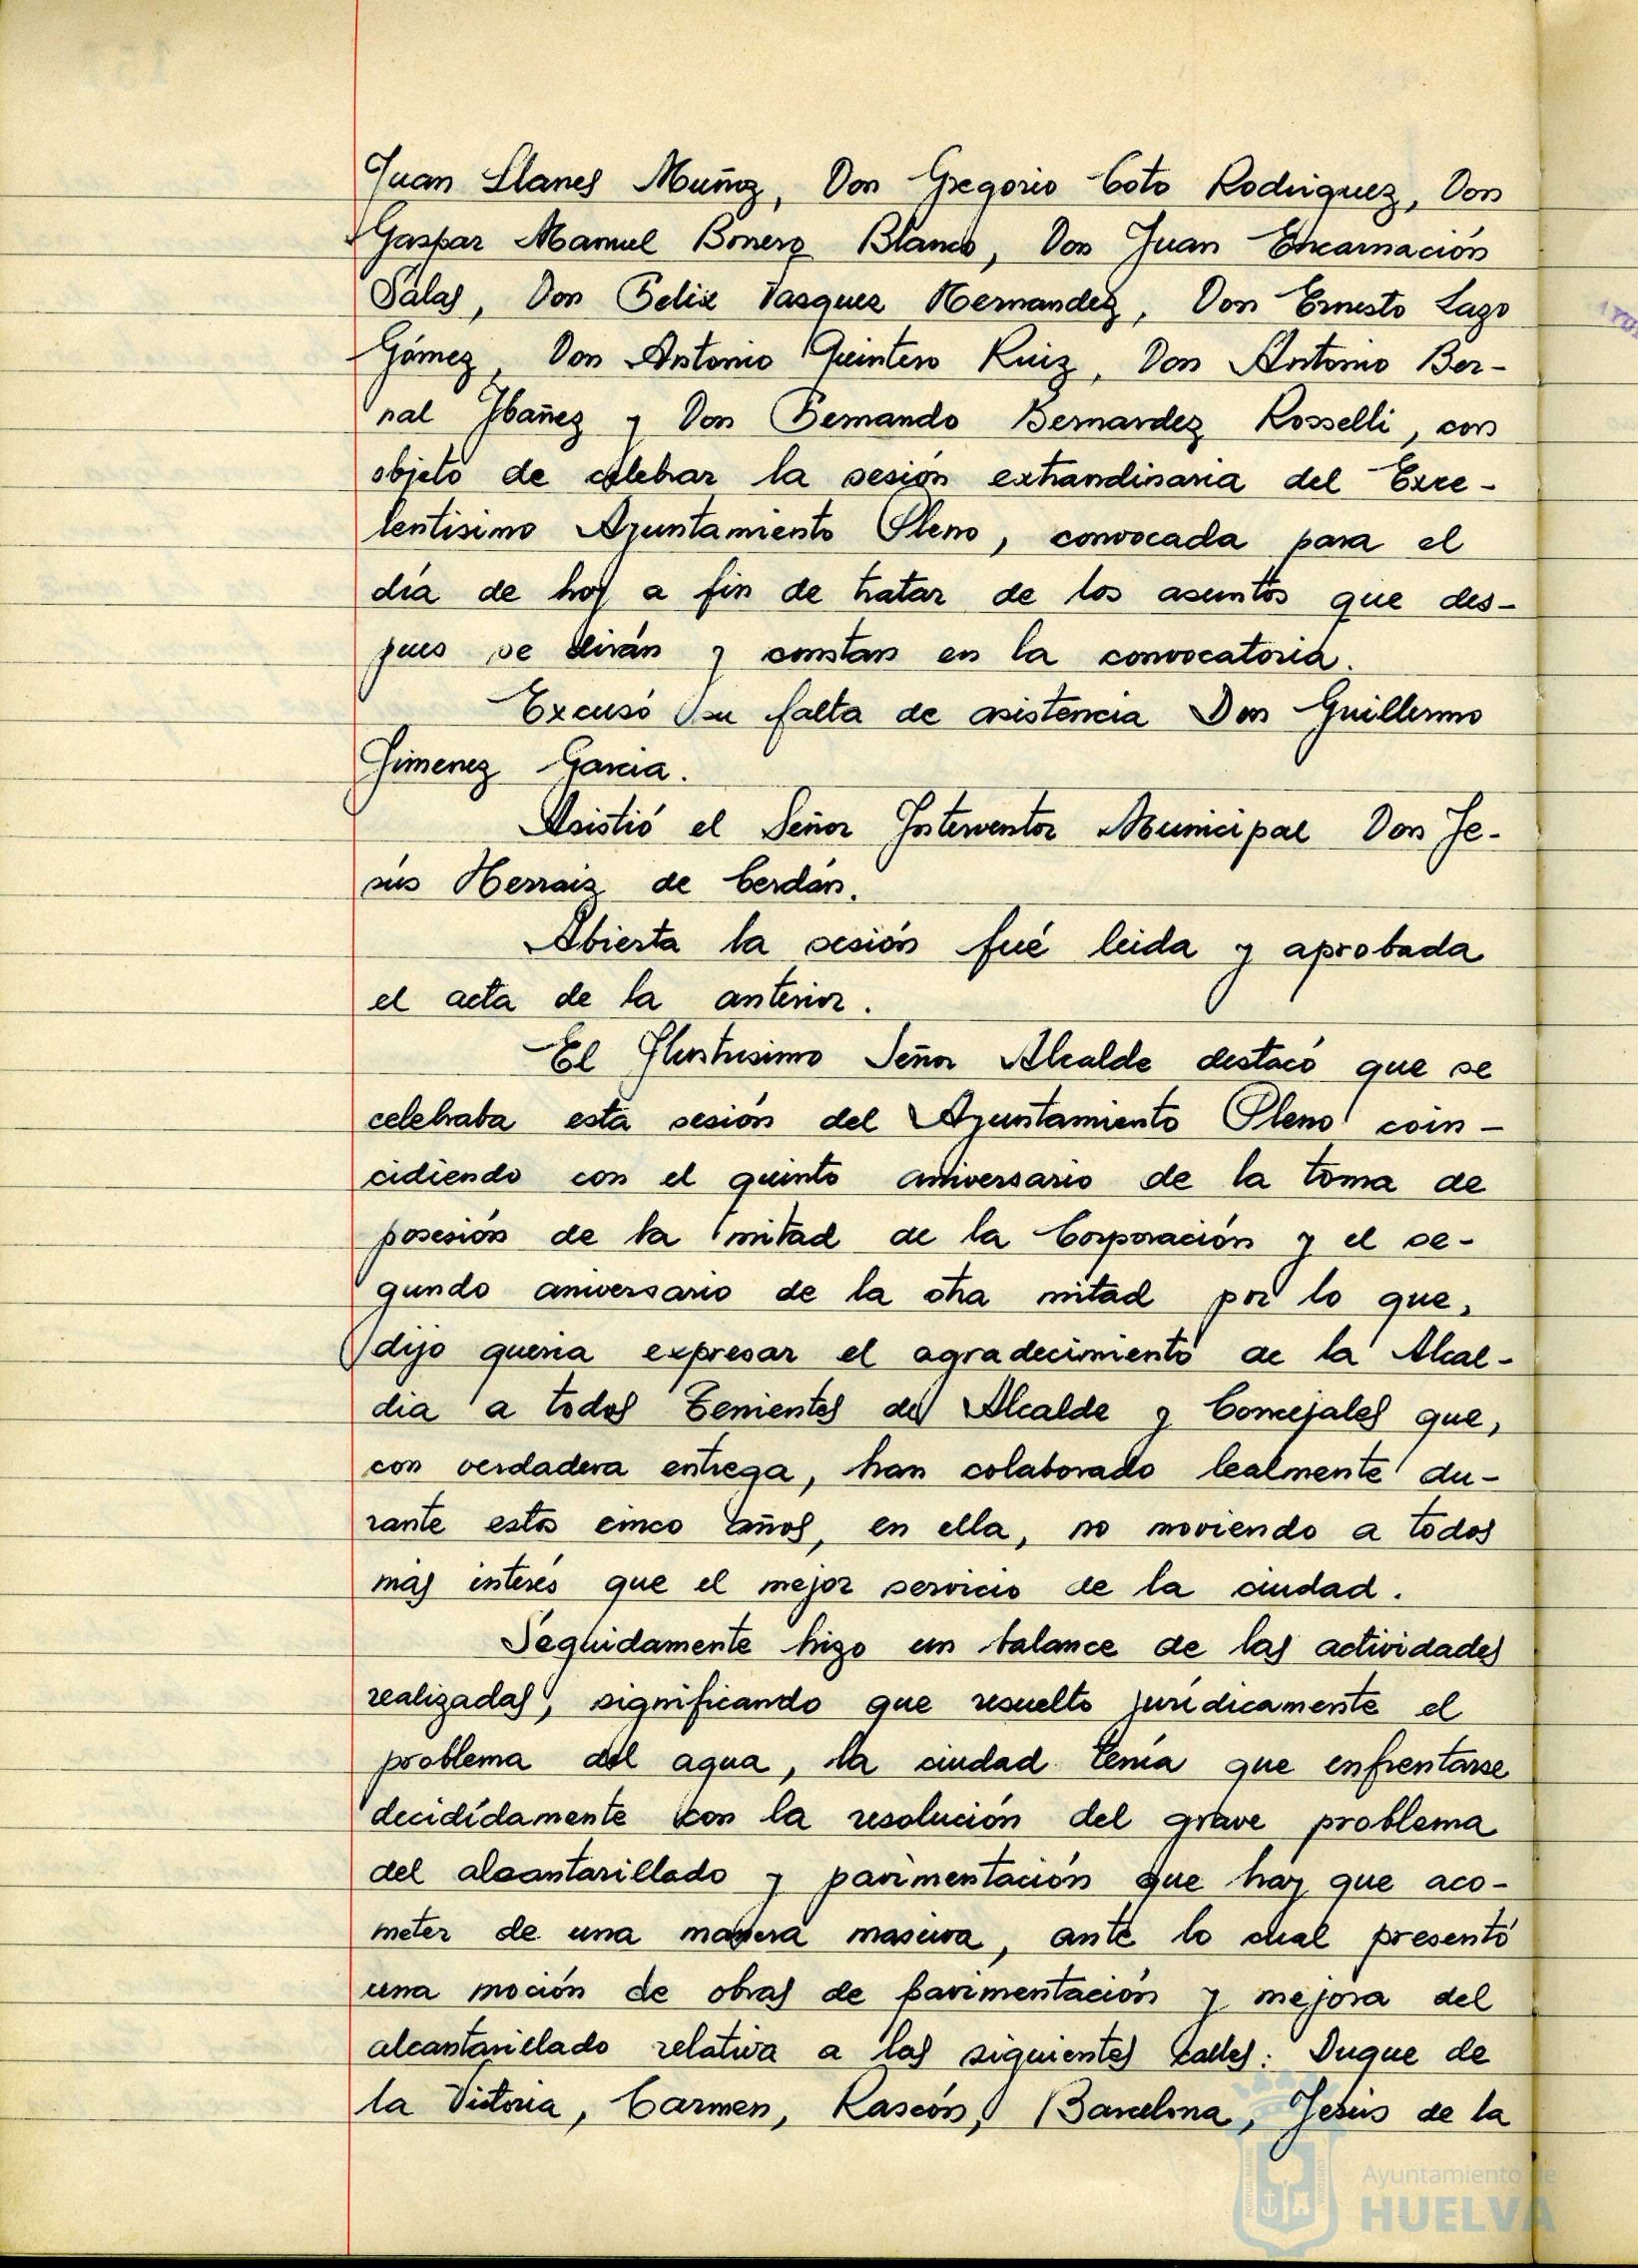 Juan Llanes Muñoz, Don Gregorio Coto Rodriguez, Don
Gaspar Manuel Bonero Blanco, Don Juan Encarnación
Salas, Don Felix Vasquez Hernandez, Don Ernesto Lazo
Gómez, Don Antonio Quintero Ruiz, Don Antonio Ber-
nal Ibañez y Don Fernando Bernardez Rosselli, con
objeto de celebrar la sesión extraordinaria del Exce-
lentisimo Ayuntamiento Pleno, convocada para el
día de hoy a fin de tratar de los asuntos que des-
pues se dirán y constan en la convocatoria.
Excusó su falta de asistencia Don Guillermo
Jimenez Garcia.
Asistió el Señor Interventor Municipal Don Je-
sús Herraiz de Cerdán.
Abierta la sesión fué leida y aprobada
el acta de la anterior.
El Ilustrisimo Señor Alcalde destacó que se
celebraba esta sesión del Ayuntamiento Pleno coin-
cidiendo con el quinto aniversario de la toma de
posesión de la mitad de la Corporación y el se-
gundo aniversario de la otra mitad por lo que,
dijo queria expresar el agradecimiento de la Alcal-
dia a todos Tenientes de Alcalde y Concejales que,
con verdadera entrega, han colaborado lealmente du-
rante estos cinco años, en ella, no moviendo a todos
más interés que el mejor servicio de la ciudad.
Seguidamente hizo un balance de las actividades
realizadas, significando que resuelto jurídicamente el
problema del agua, la ciudad tenía que enfrentarse
decididamente con la resolución del grave problema
del alcantarillado y pavimentación que hay que aco-
meter de una manera masiva, ante lo cual presentó
una moción de obras de pavimentación y mejora del
alcantarillado relativa a las siguientes calles: Duque de
la Victoria, Carmen, Rascón, Barcelona, Jesús de la
Ayuntamiento de
HUELVA